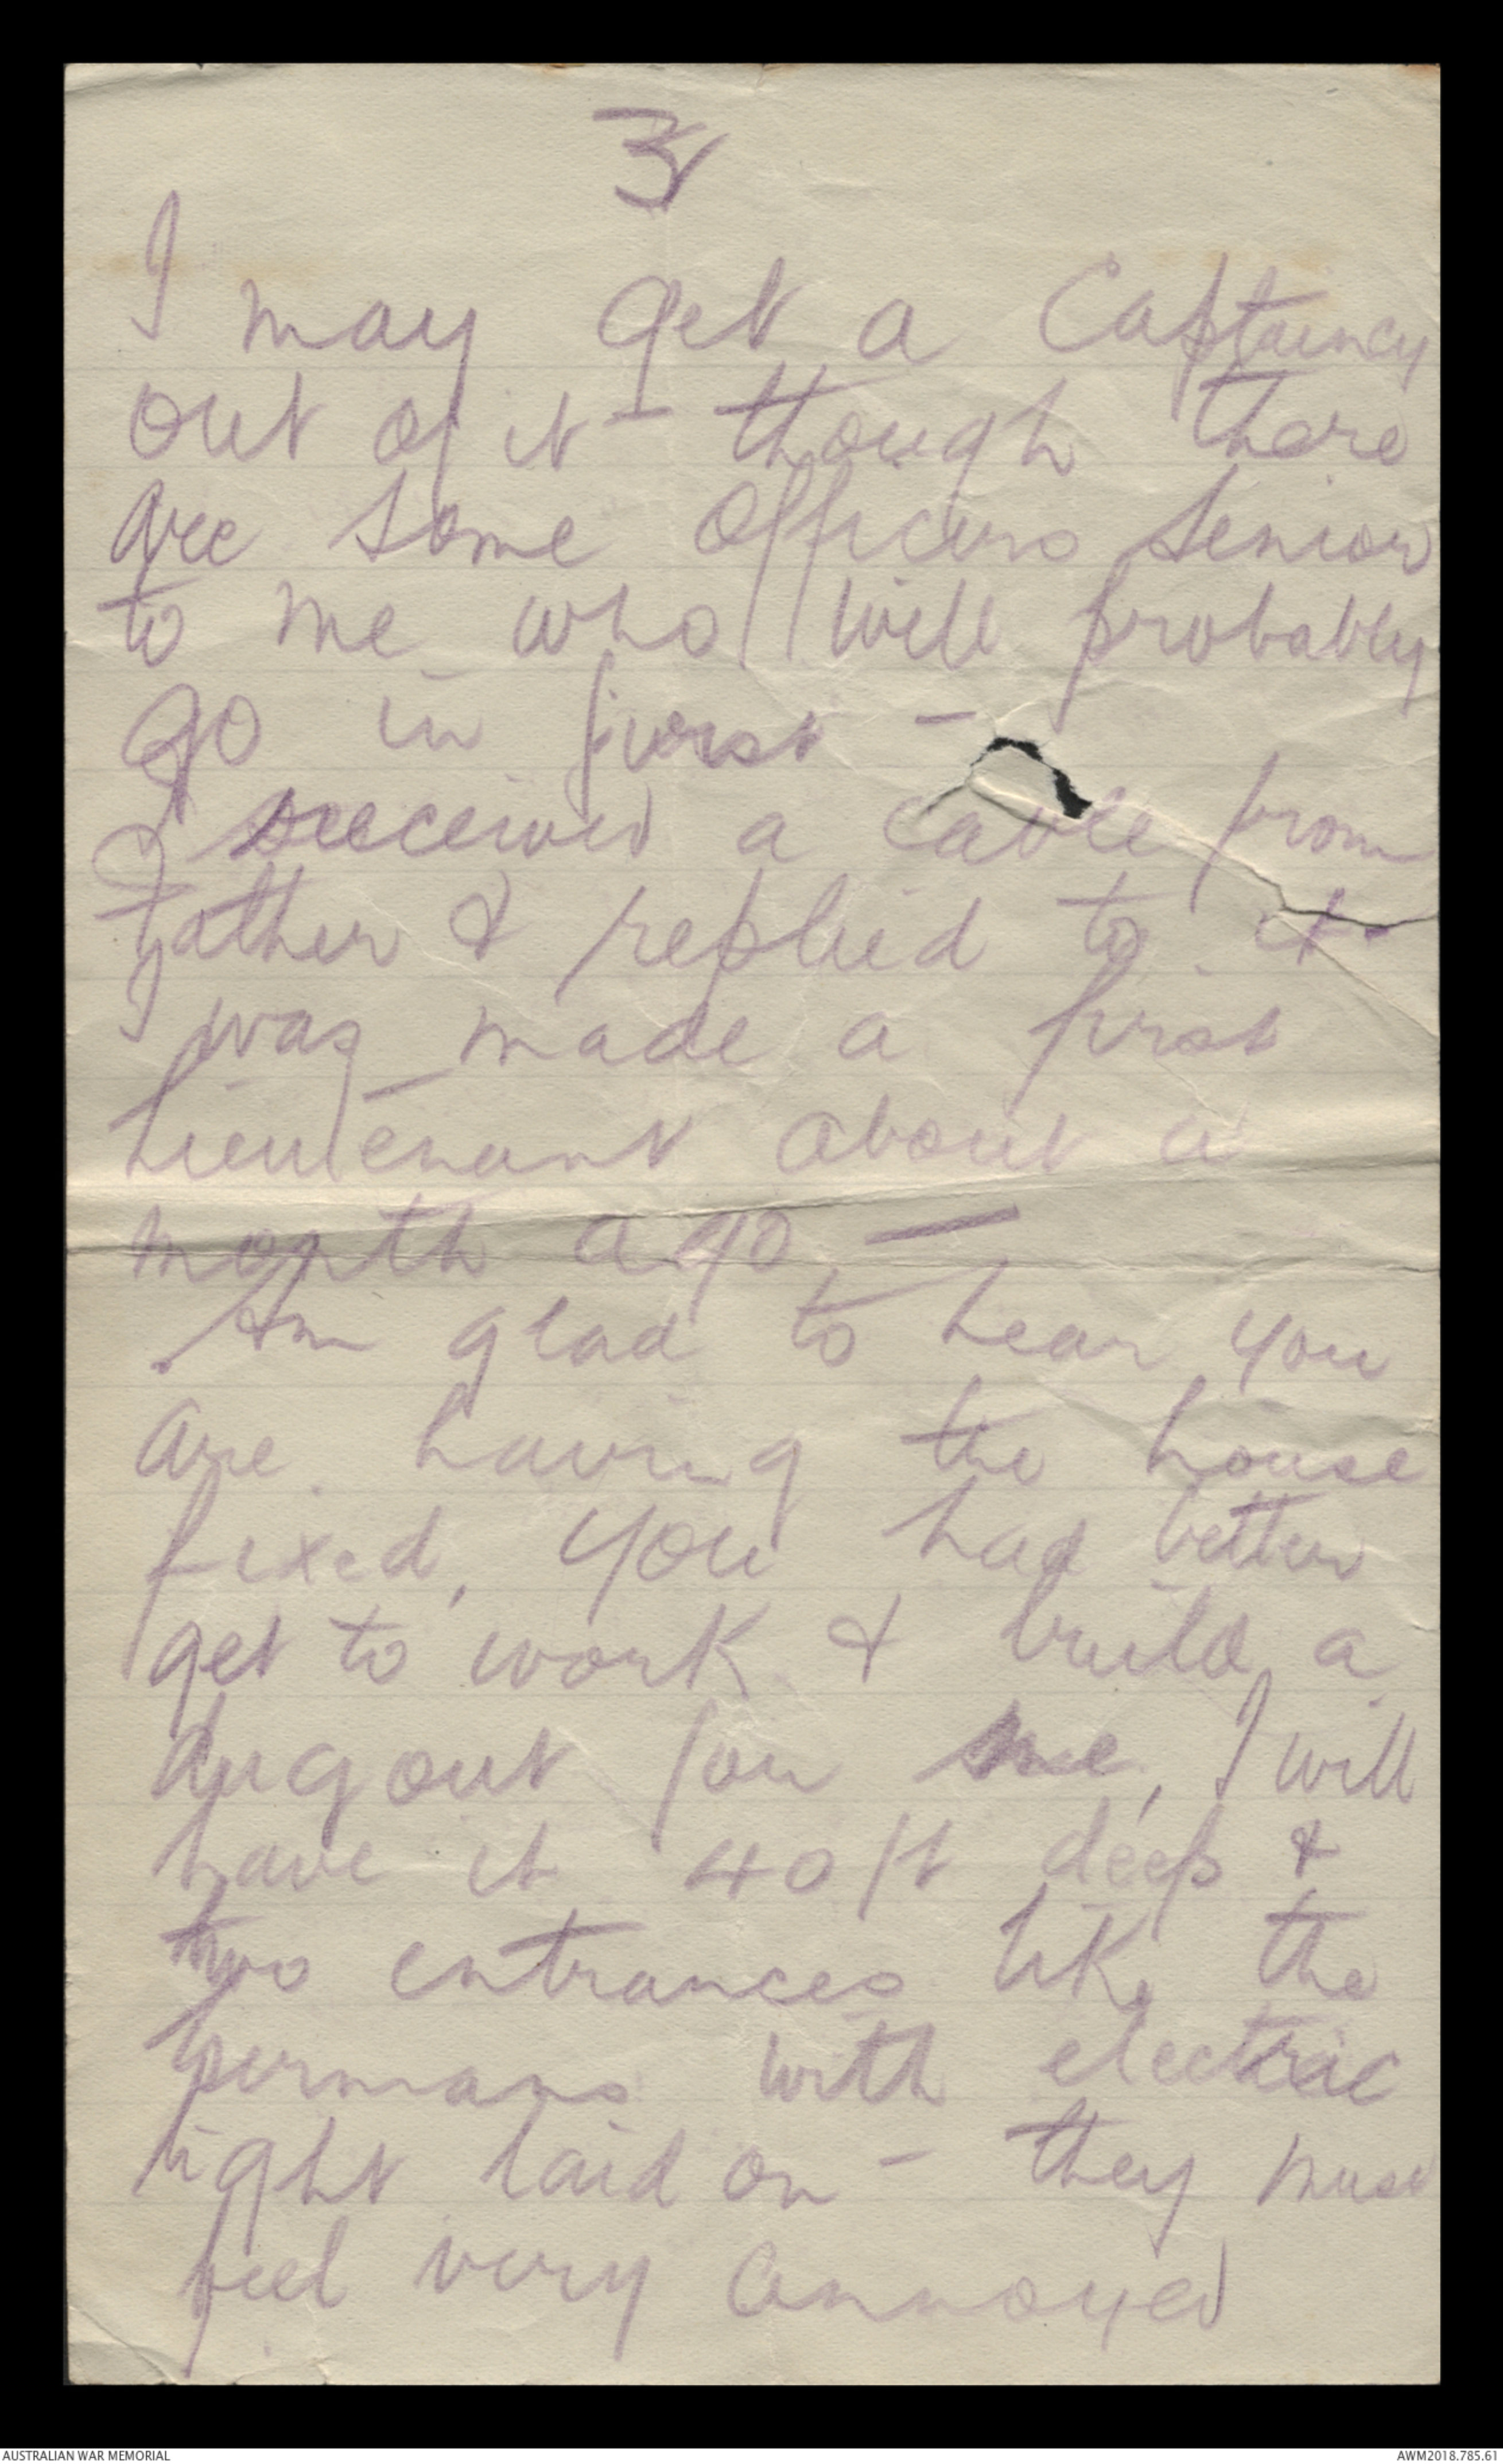 3
I may get a Captaincy
out of it - though there
are some Officers Senior
to me who will probably
go in first -
I received a cable from
Father & replied to it.
I was made a first
Lieutenant about a
month ago -
Am glad to hear you
are having the house
fixed, you had better
get to work & build a
dugout for me, I will
have it 40 ft deep &
two entrances like the
Germans with electric
light laid on - they must
feel very annoyed
AUSTRALIAN WAR MEMORIAL
AWM2018.785.61